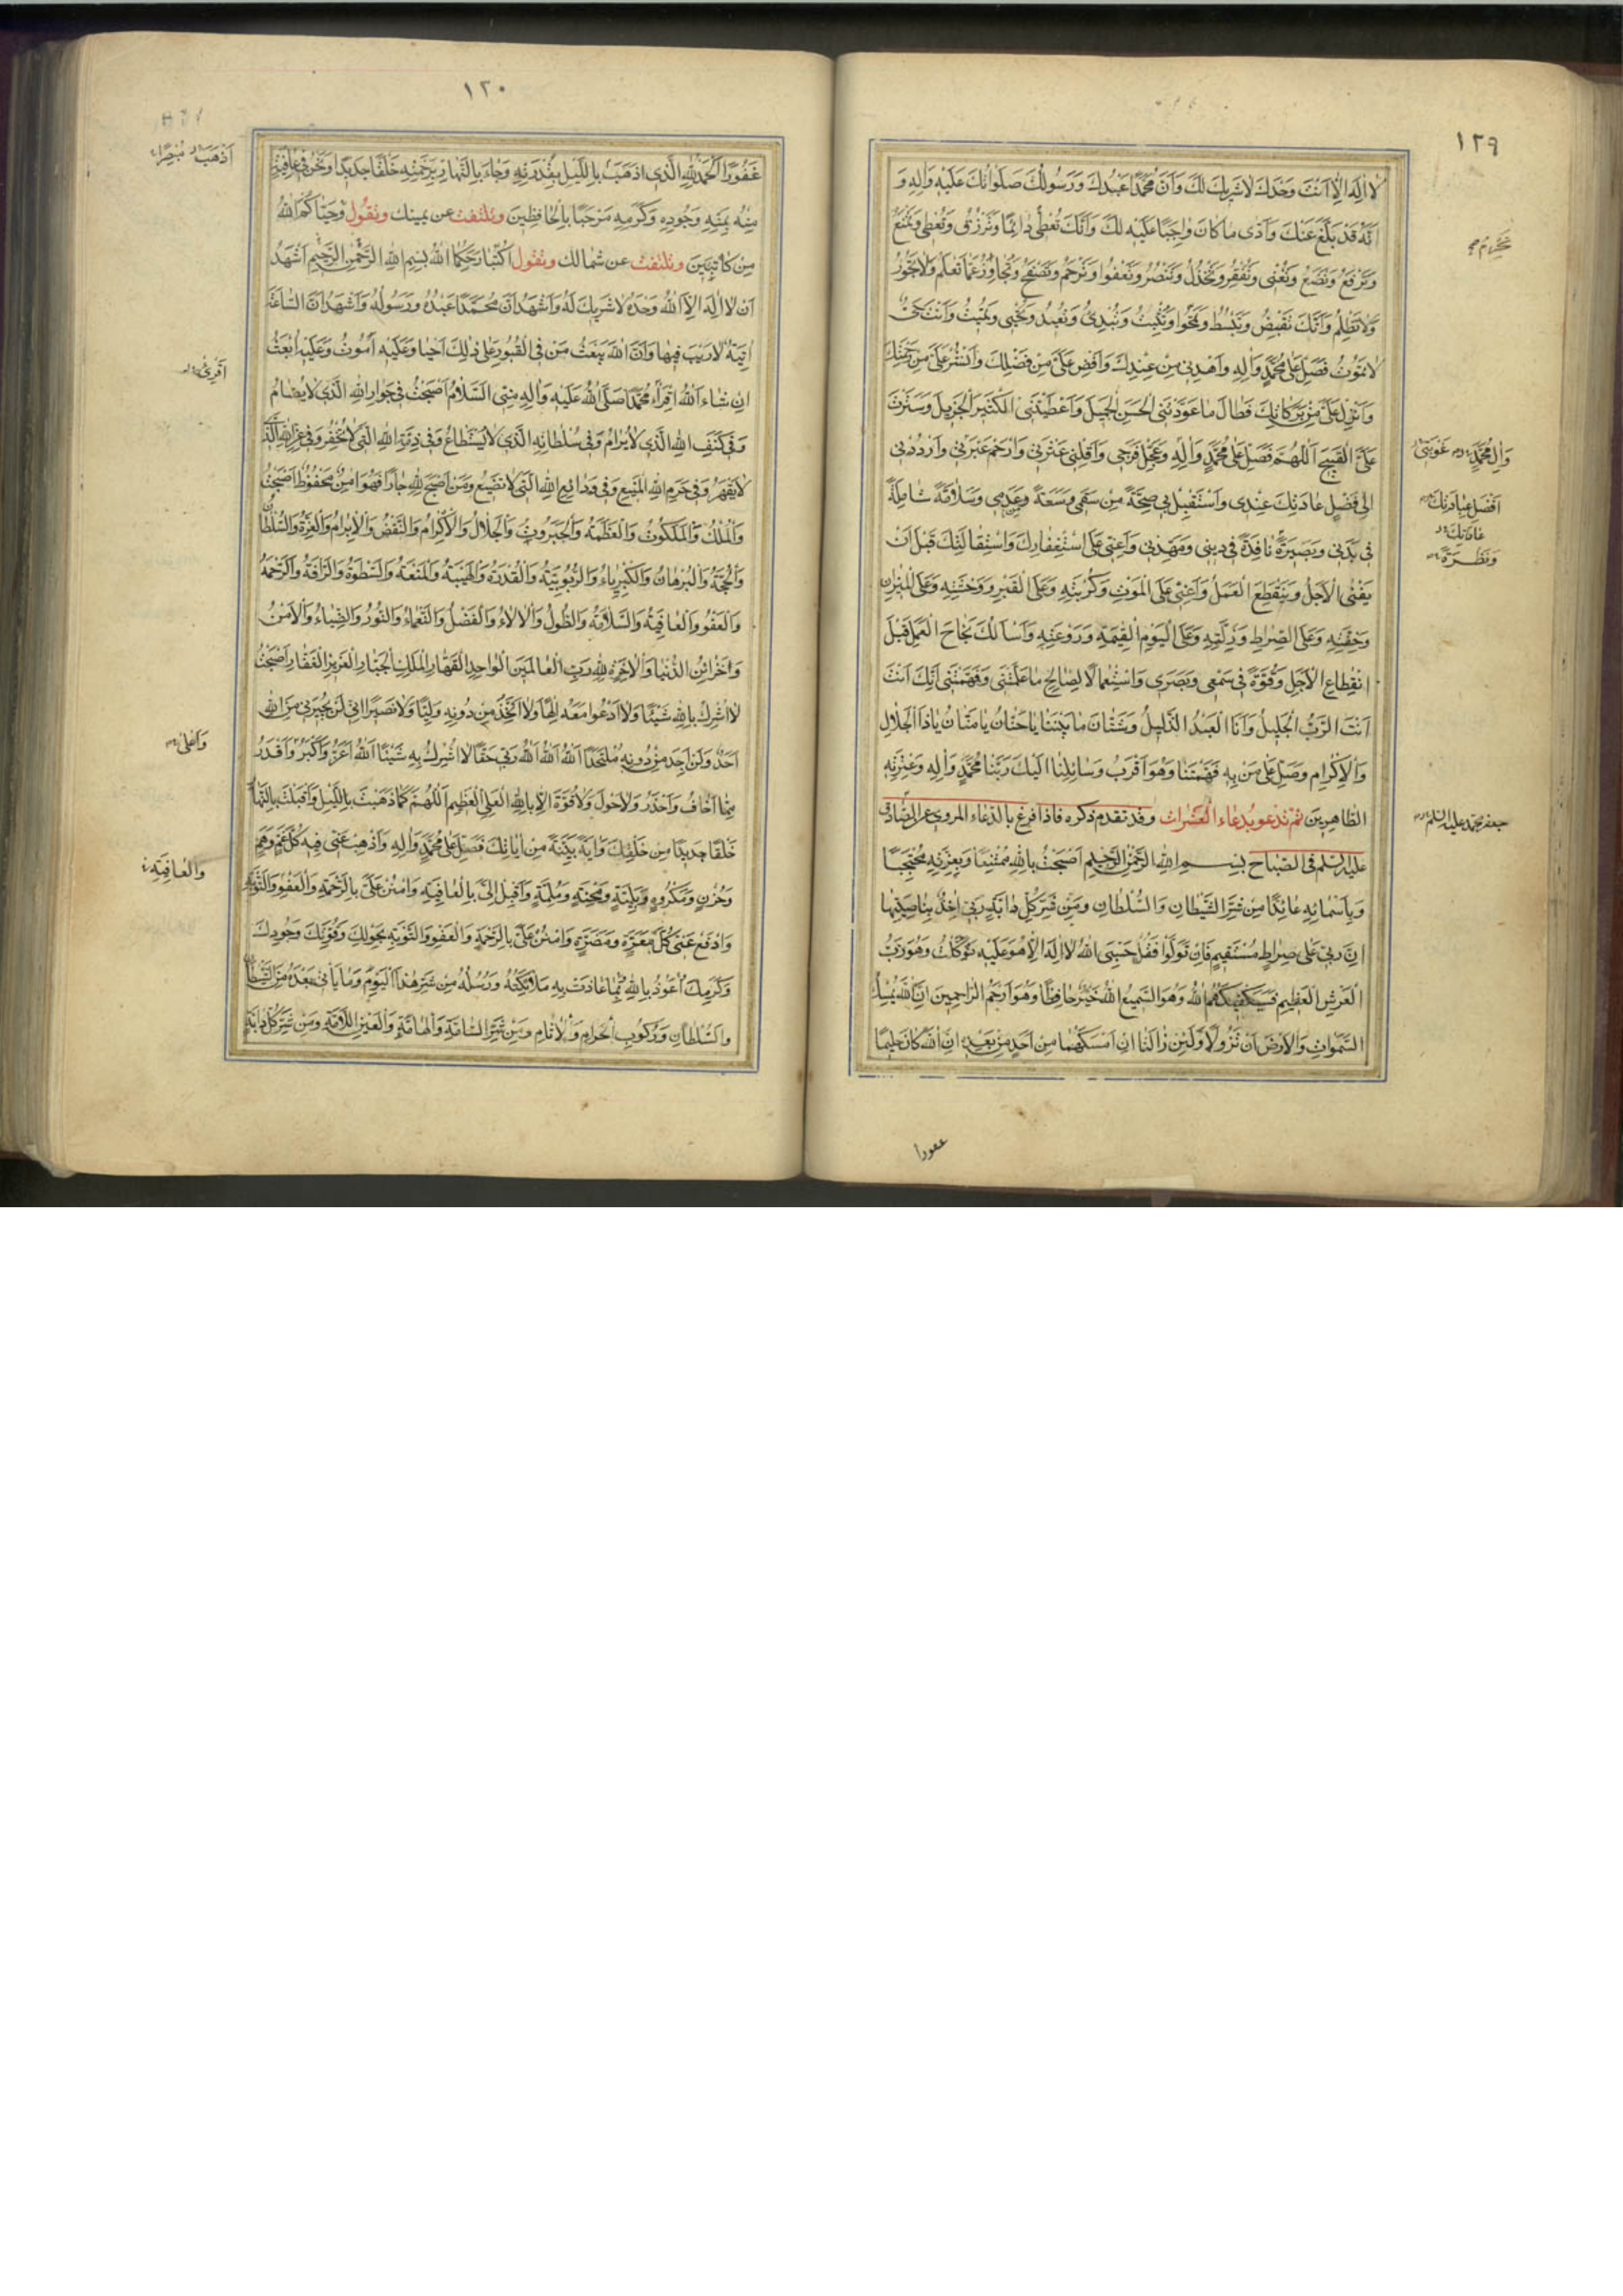 ١٢٩
لا اله الا انت وحدك لا شريك لك وان محمدا عبدك ورسولك صلواتك عليه واله و
انه قد بلغ عنك وادى ما كان واجبا عليه لك وانك تعطي دائما وترزق وتعطي وتمنع
وترفع وتضع وتغني وتفقر وتخذل وتنصر وتعفوا وترحم وتصفح وتجاوز عما تعلم ولا تجور
ولا تظلم وانك تقبض وتبسط وتمحوا وتثبت وتبدئ وتعيد وتحيي وتميت وانت حي
لا تموت فصل على محمد واله واهدني من عندك وافض علي من فضلك وانشر علي من رحمتك
وانزل علي من بركاتك فطال ما عودتني الحسن الجميل واعطيتني الكثير الجزيل وسترت
علي القبيح اللهم فصل على محمد واله وعجل فرجي واقلني عثرتي وارحم عبرتي وارددني
الى افضل عادتك عندي واستقبل بي صحة من سقمي وسعة من عدمي وسلامة شاملة
في بدني وبصيرة نافذة في ديني ومهدني واعني على استغفارك واستقالتك قبل ان
يفنى الاجل وينقطع العمل واعني على الموت وكربته وعلى القبر ووحشته وعلى الميزان
وخفته وعلى الصراط وزلته وعلى اليوم القيمة وروعته واسالك نجاح العمل قبل
انقطاع الاجل وقوة في سمعي وبصري واستعمالا لصالح ما علمتني وفهمتني انك انت
انت الرب الجليل وانا العبد الذليل وشتان ما بيننا يا حنان يا منان يا ذا الجلال
والاكرام وصل على من به فهمتنا وهو اقرب وسائلنا اليك ربنا محمد واله وعترته
الطاهرين ثم تدعو بدعاء العشرات وقد تقدم ذكره فاذا فرغ بالدعاء المروي عن الصادق
عليه السلم في الصباح بسم الله الرحمن الرحيم اصبحت بالله ممتنعا وبعزته محتجبا
وباسمائه عائذا من شر الشيطان والسلطان ومن شر كل دابة ربي اخذ بناصيتها
ان ربي على صراط مستقيم فان تولوا فقل حسبي الله لا اله الا هو عليه توكلت وهو رب
العرش العظيم فسيكفيكهم الله وهو السميع الله خير حافظا وهو ارحم الراحمين ان الله يمسك
السموات والارض ان تزولا ولئن زالتا ان امسكهما من احد من بعده ان الله كان حليما
غفورا
وال محمد
افضل عاداتك
ونظرة
جعفر بن محمد عليه السلم
١٣٠
غفورا الحمد لله الذي اذهب بالليل بقدرته وجاء بالنهار برحمته خلقا جديدا ونحن في عافية
منه بمنه وجوده وكرمه مرحبا بالحافظين وتلتفت عن يمينك وتقول وحياكما الله
من كاتبين وتلتفت عن شمالك وتقول اكتبا رحمكما الله بسم الله الرحمن الرحيم اشهد
ان لا اله الا الله وحده لا شريك له واشهد ان محمدا عبده ورسوله واشهد ان الساعة
اتية لا ريب فيها وان الله يبعث من في القبور على ذلك احيا وعليه اموت وعليه ابعث
ان شاء الله اقرأ محمدا صلى الله عليه واله مني السلام اصبحت في جوار الله الذي لا يضام
وفي كنف الله الذي لا يرام وفي سلطانه الذي لا يستطاع وفي ذمة الله التي لا تخفر وفي عز الله الذي
لا يقهر وفي حرم الله المنيع وفي ودائع الله التي لا تضيع ومن اصبح لله جارا فهو امن محفوظ اصبحت
والملك والملكوت والعظمة والجبروت والجلال والاكرام والنقض والابرام والعزة والسلطان
والحجة والبرهان والكبرياء والربوبية والقدرة والهيبة والمنعة والسطوة والرافة والرحمة
والعفو والعافية والسلامة والطول والالاء والفضل والنعماء والنور والضياء والامن
وخزائن الدنيا والاخرة لله رب العالمين الواحد القهار الملك الجبار العزيز الغفار اصبحت
لا اشرك بالله شيئا ولا ادعوا معه الها ولا اتخذ من دونه وليا ولا نصيرا اني لن يجيرني من الله
احد ولن اجد من دونه ملتحدا الله الله الله ربي حقا لا اشرك به شيئا الله اعز واكبر واقدر
مما اخاف واحذر ولا حول ولا قوة الا بالله العلي العظيم اللهم كما ذهبت بالليل واقبلت بالنهار
خلقا جديدا من خلقك واية بينة من اياتك فصل على محمد واله واذهب عني فيه كل غم وهم
وحزن ومكروه وبلية ومحنة وملمة واقبل الي بالعافية وامنن علي بالرحمة والعفو والتوبة
وادفع عني كل معرة ومضرة وامنن علي بالرحمة والعفو والتوبة بحولك وقوتك وجودك
وكرمك اعوذ بالله مما عاذت به ملائكته ورسله من شر هذا اليوم وما ياتي بعده من الشيطان
والسلطان وركوب الحرام والاثام ومن شر السامة والهامة والعين اللامة ومن شر كل دابة
اذهب مبصرا
اقرئ
واعلى
والعافية